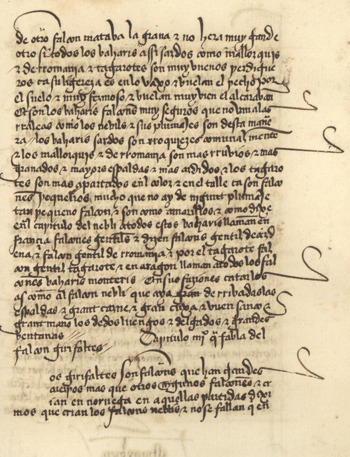 de otro falcon mataba la grana & no hera muy grande
otro si todos los baharis assi sardos como mallorquis
& de rromania & tagarotes son muy buenos perdigue
ros ca su ligereza es en lo & buelan el pecho por
el suelo & muy fermoso & buelan muy bien el alcaravan
Et son los baharis falcones muy seguros que non a las
rraleas como los neblis & sus plumajes son desta mane
ra los baharis sardos son rroquezes comunal mente
& los mallorquis & de rromania son mas rruvios & mas
granados & mayores espaldas & mas ardidos & los tagaro
tes son mas apartados en l color & en el talle ca son falco
nes pequeños mucho que no ay de ningunt plumaje
tan pequeno falcon & son como amarillos & como dixe
en l capitulo del nebli a todos estos baharis llaman en
françia falcones gentiles & dizen falcons gentil de
ena & falcon gentil de rromania & por el tagarote fal
con gentil tagarote & en aragon llaman a todos los fal
cones baharis montaris En sus fayciones catarlos
as como al falcon nebli que aya de rribadas las
espaldas & grant carne & grant & buen sano &
grant mano los dedos luengos & delgados & grandes
ventanas Capitulo iiiº que fabla del
falcon girifaltes
os girifaltes son falcones que han grandes
cuerpos mas que otros ningunos falcones & cr
ian en noruega en aquellas partidas do
mos que crian los falcones neblis & no se fallan que en